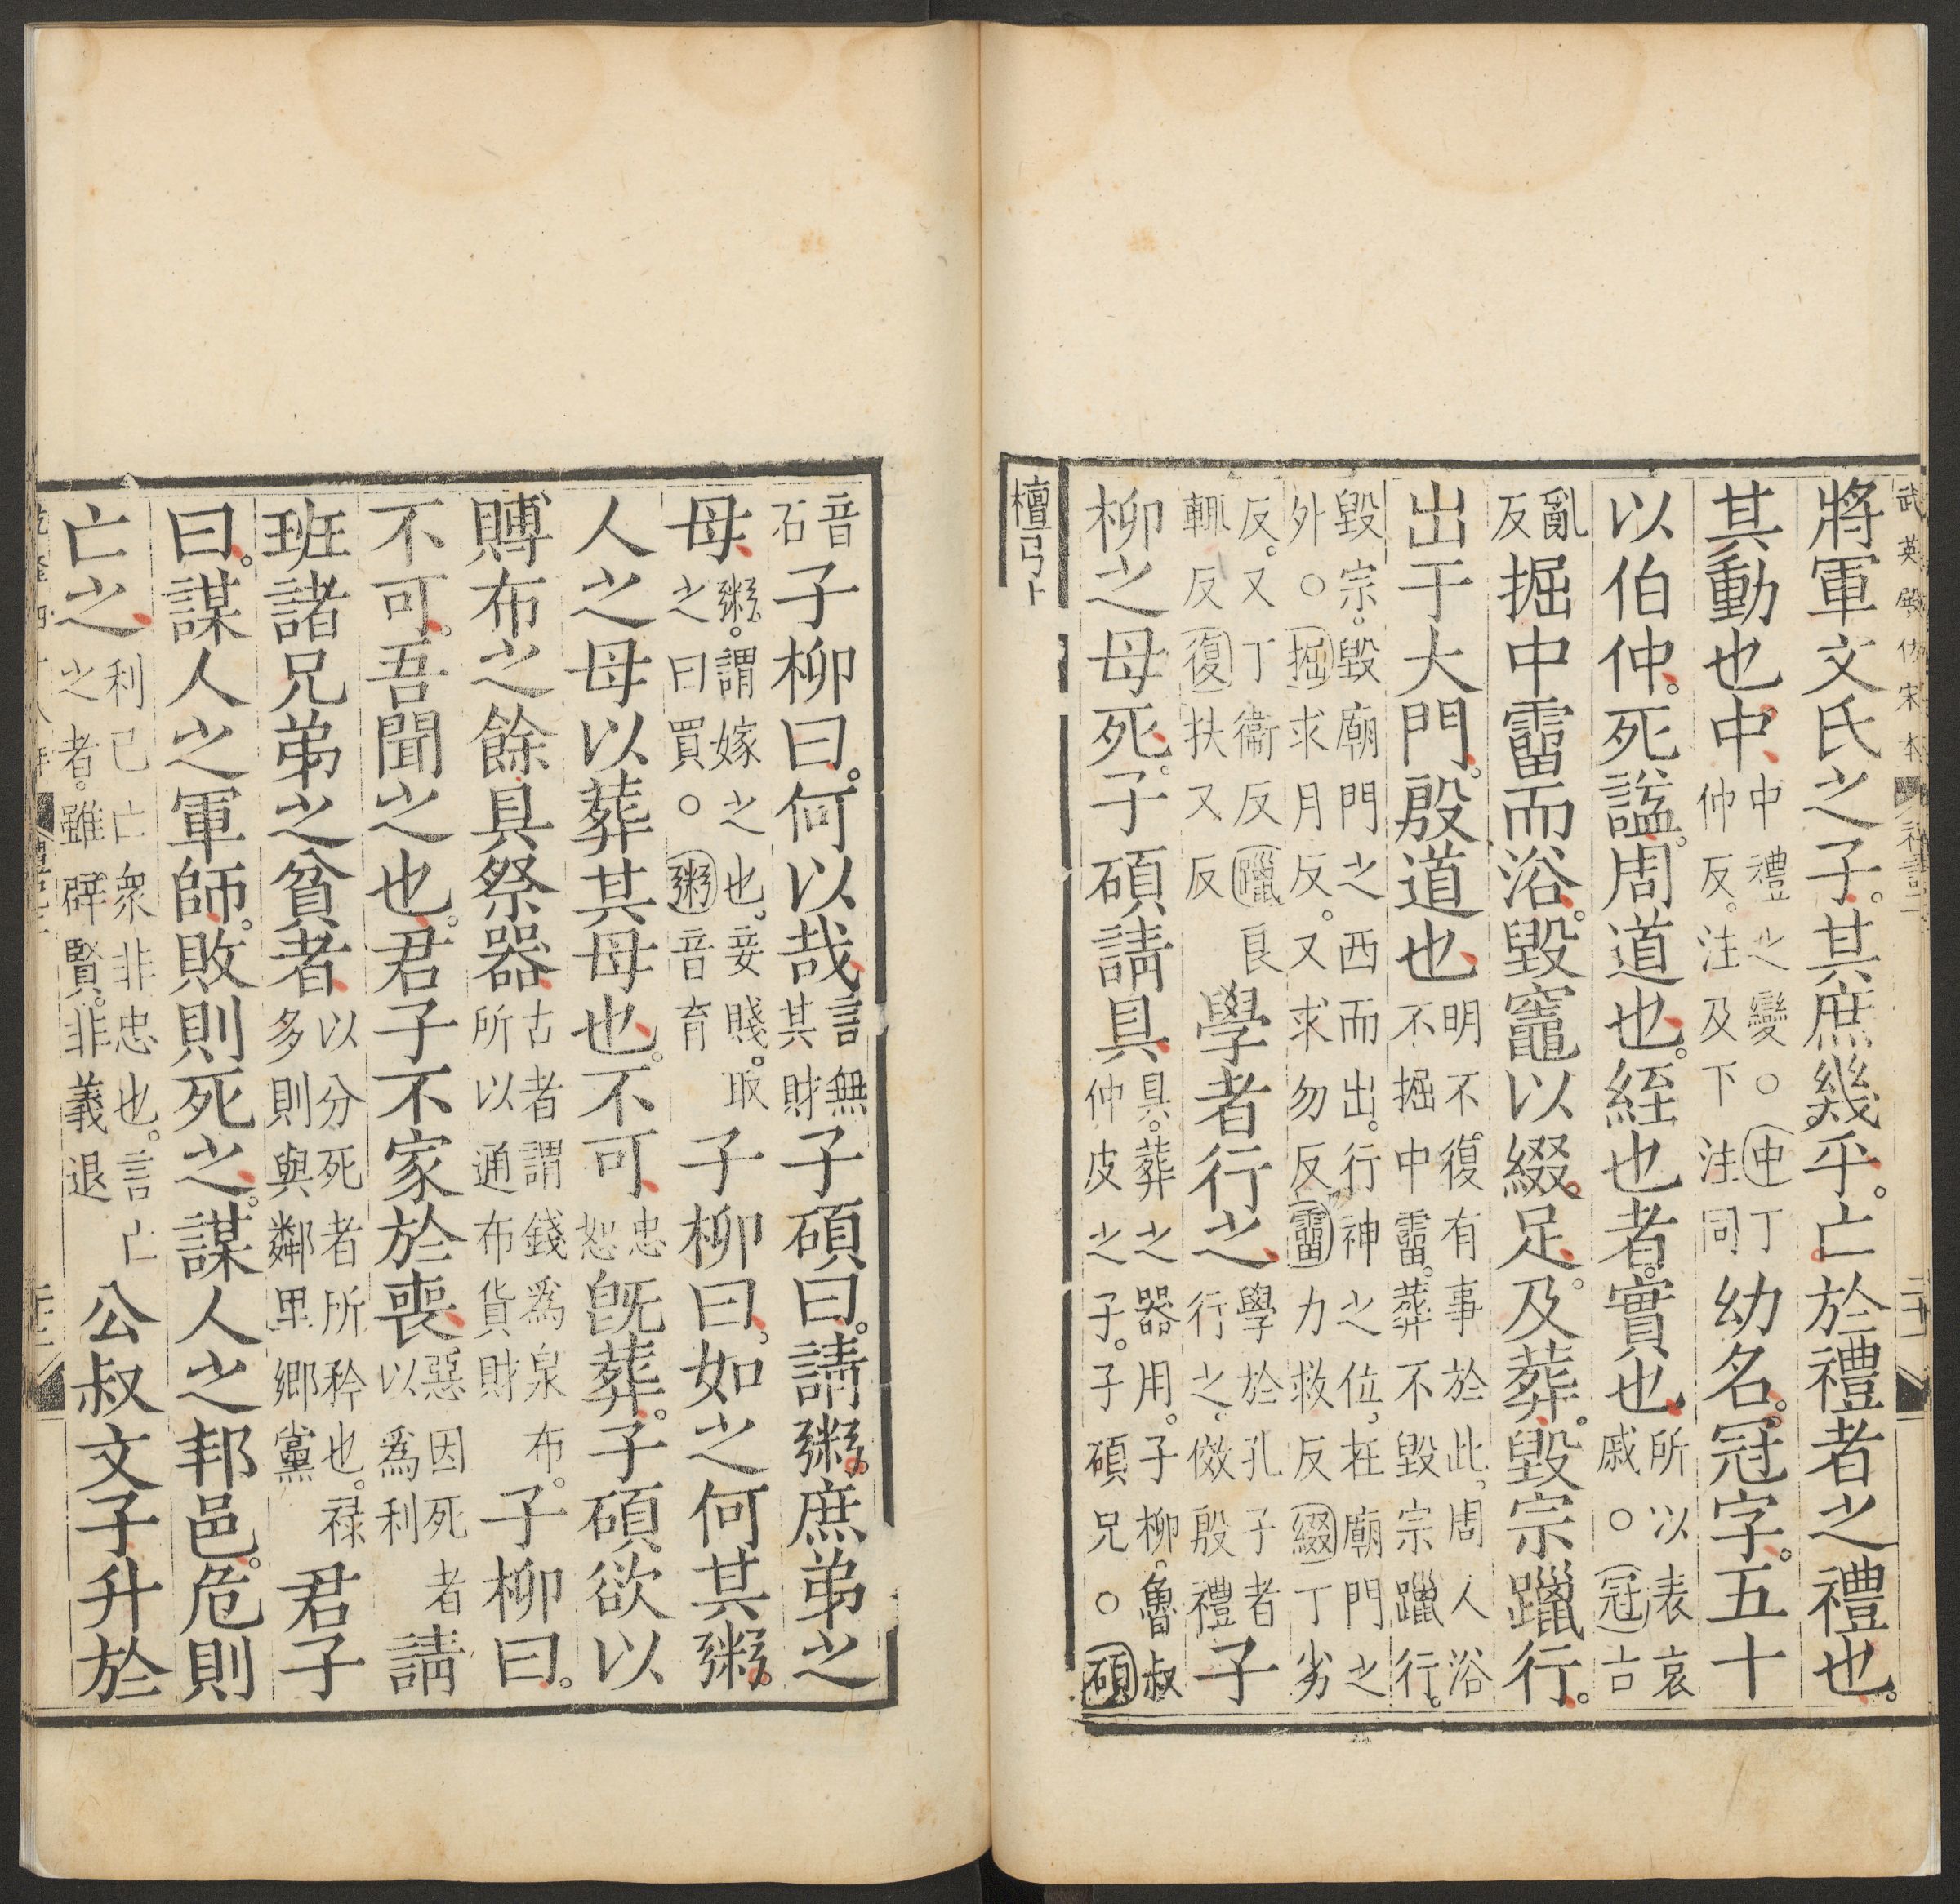 武英殿仿宋本 禮記二 二十一
將軍文氏之子。其庶幾乎。亡於禮者之禮也。
其動也中。中禮之變。○中丁仲反。注及下注同幼名。冠字。五十
以伯仲。死諡。周道也。絰也者。實也所以表哀戚。○冠古
亂反掘中霤而浴。毀竈以綴足。及葬。毀宗躐行。
出于大門。殷道也明不復有事於此,周人浴不掘中霤。葬不毀宗躐行。
毀宗。毀廟門之西而出。行神之位,在廟門之外。○掘求月反。又求勿反霤力救反綴丁劣
反。又丁衞反躐良輒反復扶又反學者行之學於孔子者行之,傚殷禮子
柳之母死。子碩請具具。葬之器用。子柳。魯叔仲皮之子。子碩兄。○碩
檀弓上
音石子柳曰。何以哉言無其財子碩曰。請粥庶弟之
母粥。謂嫁之也,妾賤。取之曰買。○粥音育子柳曰。如之何其粥。
人之母以葬其母也。不可忠恕旣葬。子碩欲以
賻布之餘具祭器古者謂錢爲泉布。所以通布貨財子柳曰。
不可。吾聞之也。君子不家於喪惡因死者以爲利請
班諸兄弟之貧者以分死者所矜也。祿多則與鄰里鄉黨君子
曰。謀人之軍師。敗則死之。謀人之邦邑。危則
亡之利己亡衆非忠也。言亡之者。雖辟賢。非義退公叔文子升於